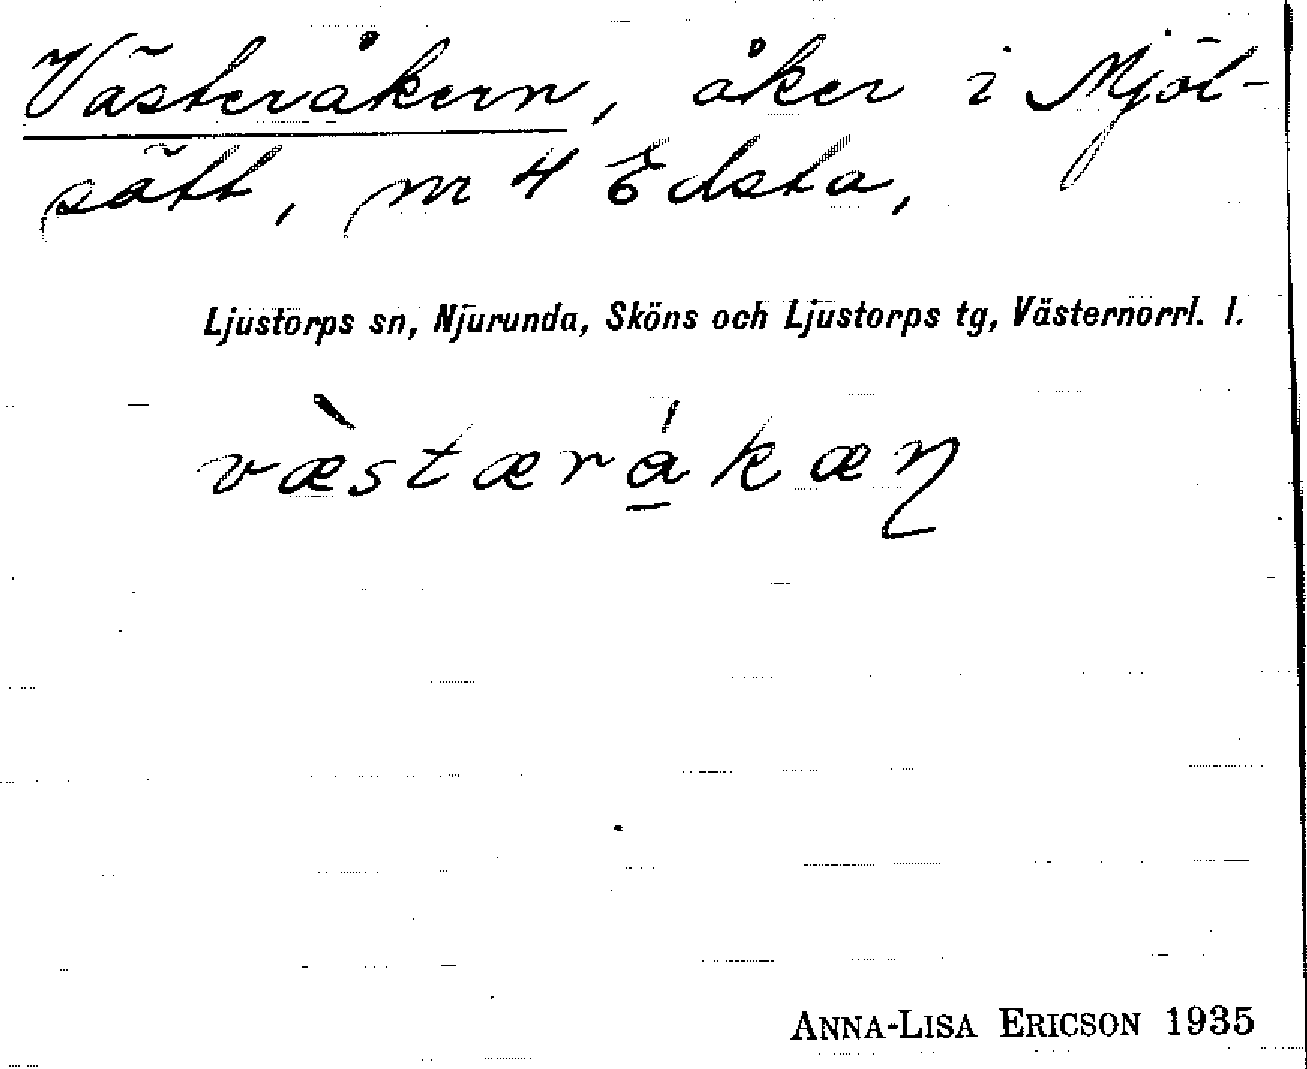 Västeråkern, åker i Mjöl-
sätt, m 4 Edsta,
Ljustorps sn, Njurunda, Sköns och Ljustorps tg, Västernorrl. l.
væ̀stærá̱kæɳ
ANNA-LISA ERICSON 1935